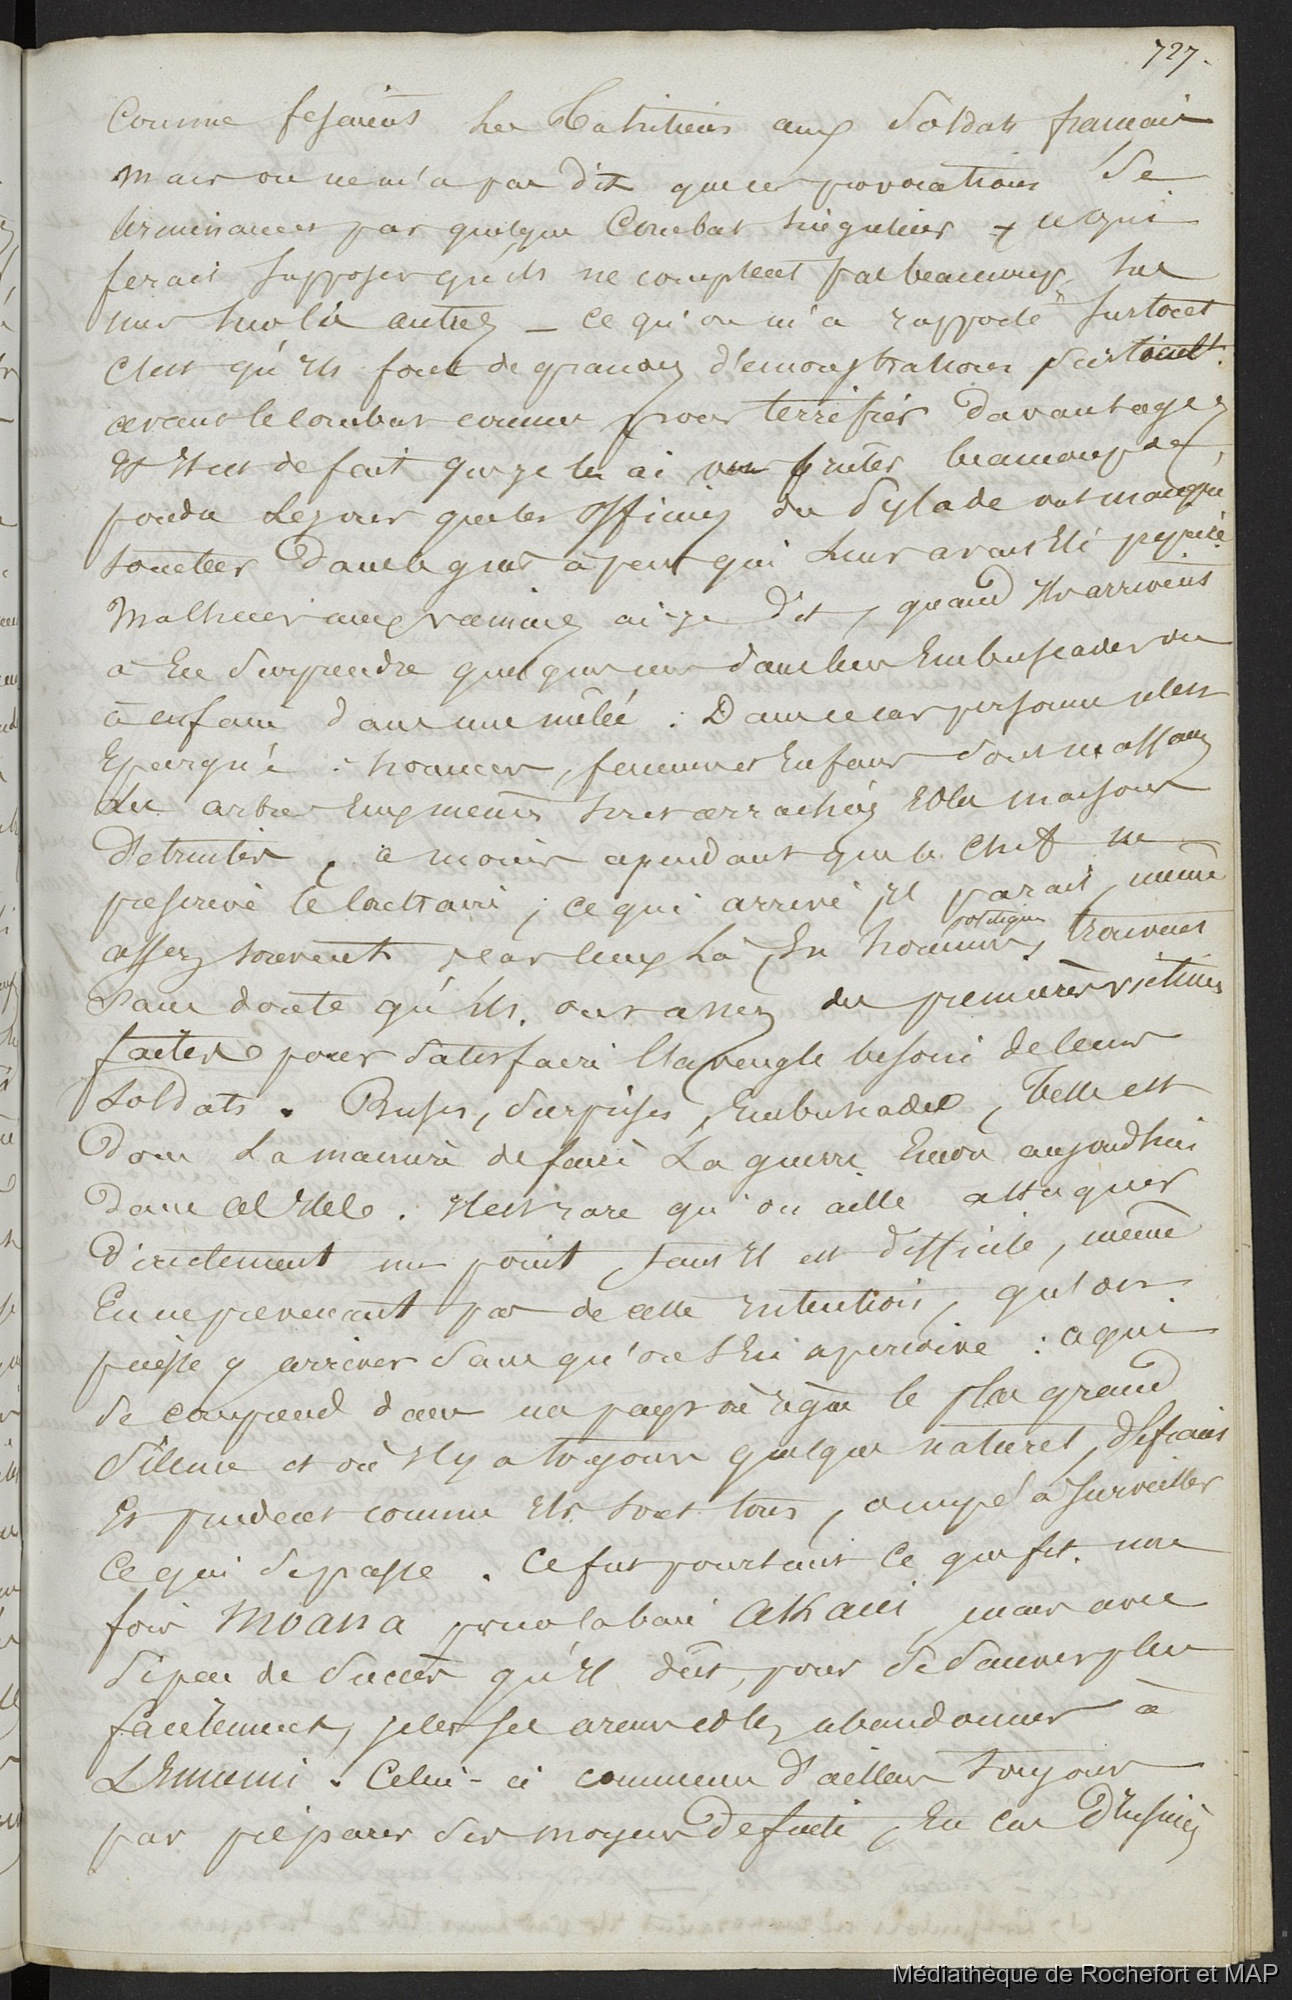 727.
Comme fesaient les Tahitiens aux Soldats français
mais on ne m'a pas dit que ces provocations se
terminassent par quelque Combat singulier, ce qui
ferait supposer qu'ils ne comptent pas beaucoup les
uns sur les autres — ce qu'on m'a rapporté surtout
c'est qu'ils font de grandes démonstrations surtout
avant le combat comme pour terrifier davantage,
Et il est de fait que je les ai vus imiter beaucoup de
poudre le jour que les officiers du Pylade ont manqué
tomber dans le guet à pens qui leur avait été préparé.
Malheur aux vaincus ai-je dit, quand ils arrivent
à En Surprendre quelques uns dans leurs Embuscades ou
à en faire dans une mêlée : Dans ce cas personne n'est
Epargné : hommes, femmes et Enfans sont massacrés
les arbres Eux mêmes sont arrachés et les maisons
Détruites, à moins cependant que le Chef ne
prescrive le contraire, ce qui arrive il parait, même
assez souvent, car ceux là, En hommes politiques, trouvent
sans doute qu'ils ont assez des premières victimes
faites pour satisfaire l'aveugle besoin de leurs
soldats. Ruses, surprises, Embuscades, Telle est
Donc La manière de faire La guerre Encore aujourd'hui
dans cet Ile. Il est rare qu'on aille attaquer
Directement un point, tant il est difficile, même
En ne prevenant pas de cette intention, qu'on
puisse y arriver sans qu'on s'En aperçoive : ce qui
se comprend dans un pays où règne le plus grand
silence et où il y a toujours quelque naturel, défiant
Et prudent comme ils sont tous, occupé à surveiller
ce qui se passe. Ce fut pourtant ce que fit une
fois Moana pour la baie Akani, mais avec
si peu de succès qu'il dût, pour se sauver plus
facilement, jeter ses armes et les abandonner à
L'Ennemi. Celui-ci commence d'ailleurs toujours
par préparer ses moyens De fuite, En cas D'insuccès